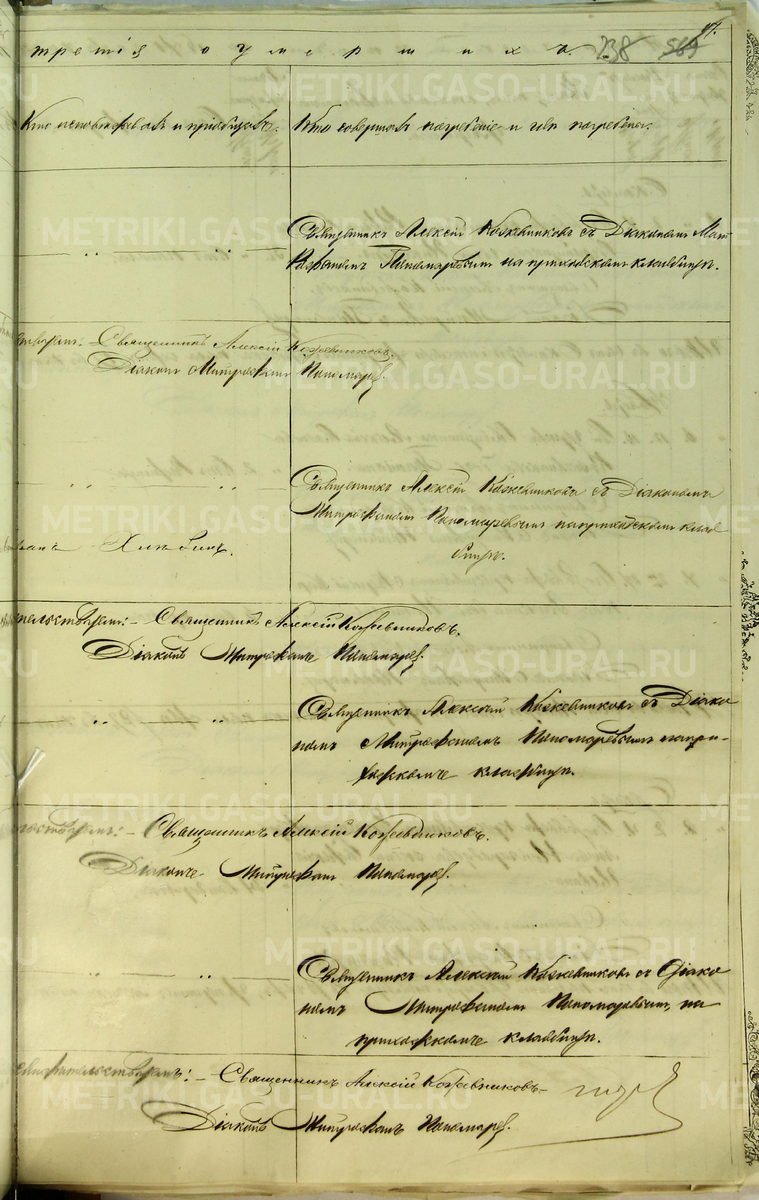 третія о умершихъ. 238 569
Кто исповѣдывалъ и пріобщалъ.
Кто совершалъ погребеніе и гдѣ погребены.
Священникъ Алексій Кожевниковъ съ Діакономъ Мит
рофаномъ Пономаревымъ на приходскомъ кладбищѣ.
Священникъ Алексій Кожевниковъ.
Діаконъ Митрофанъ Пономаревъ.
Священникъ Алексій Кожевниковъ съ Діакономъ
Митрофаномъ Пономаревымъ на приходскомъ клад
бищѣ.
Священникъ Алексій Кожевниковъ.
Діаконъ Митрофанъ Пономаревъ.
Священникъ Алексій Кожевниковъ съ Діако
номъ Митрофаномъ Пономаревымъ на при-
ходскомъ кладбищѣ.
Священникъ Алексій Кожевниковъ.
Діаконъ Митрофанъ Пономаревъ.
Священникъ Алексій Кожевниковъ съ Діако
номъ Митрофаномъ Пономаревымъ, на
приходскомъ кладбищѣ.
Священникъ Алексій Кожевниковъ
Діаконъ Митрофанъ Пономаревъ.
METRIKI.GASO-URAL.RU